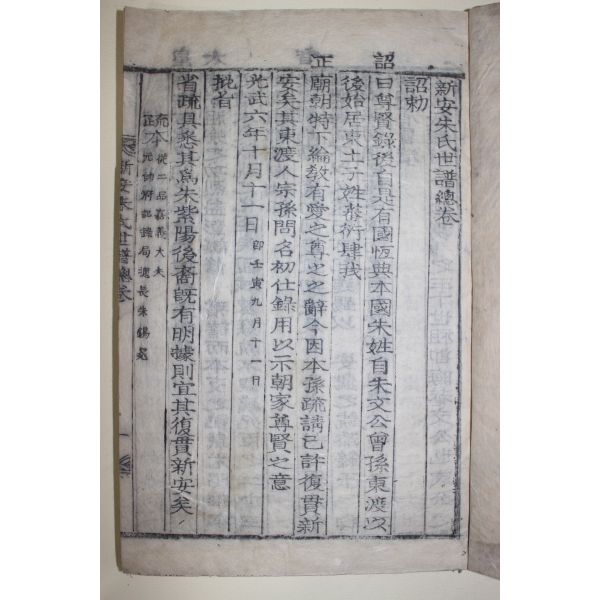 新安朱氏世譜總卷
詔勅
詔曰尊賢錄後自是有國恆典本國朱姓自朱文公曾孫東渡以
後始居東土子姓蕃衍肆我
正廟朝特下綸敎有愛之尊之之辭今因本孫疏請已許復貫新
安矣其東渡人宗孫問名初仕錄用以示朝家尊賢之意
光武六年十月十一日 卽壬寅九月十一日
批旨
省疏具悉其爲朱紫陽後裔旣有明據則宜其復貫新安矣
疏本 從二品嘉義大夫
元帥府記錄局總長朱錫冕
新安朱氏世譜總卷
一